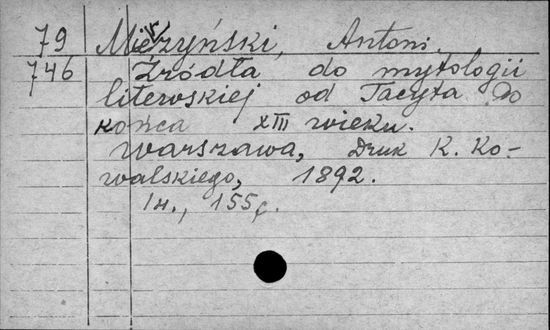 79 Mierzyński, Antoni.
746 Źródła do mytologii
litewskiej od Tacyta do
końca XIII wieku.
Warszawa, Druk K. Ko-
walskiego, 1892.
1н., 155 с.